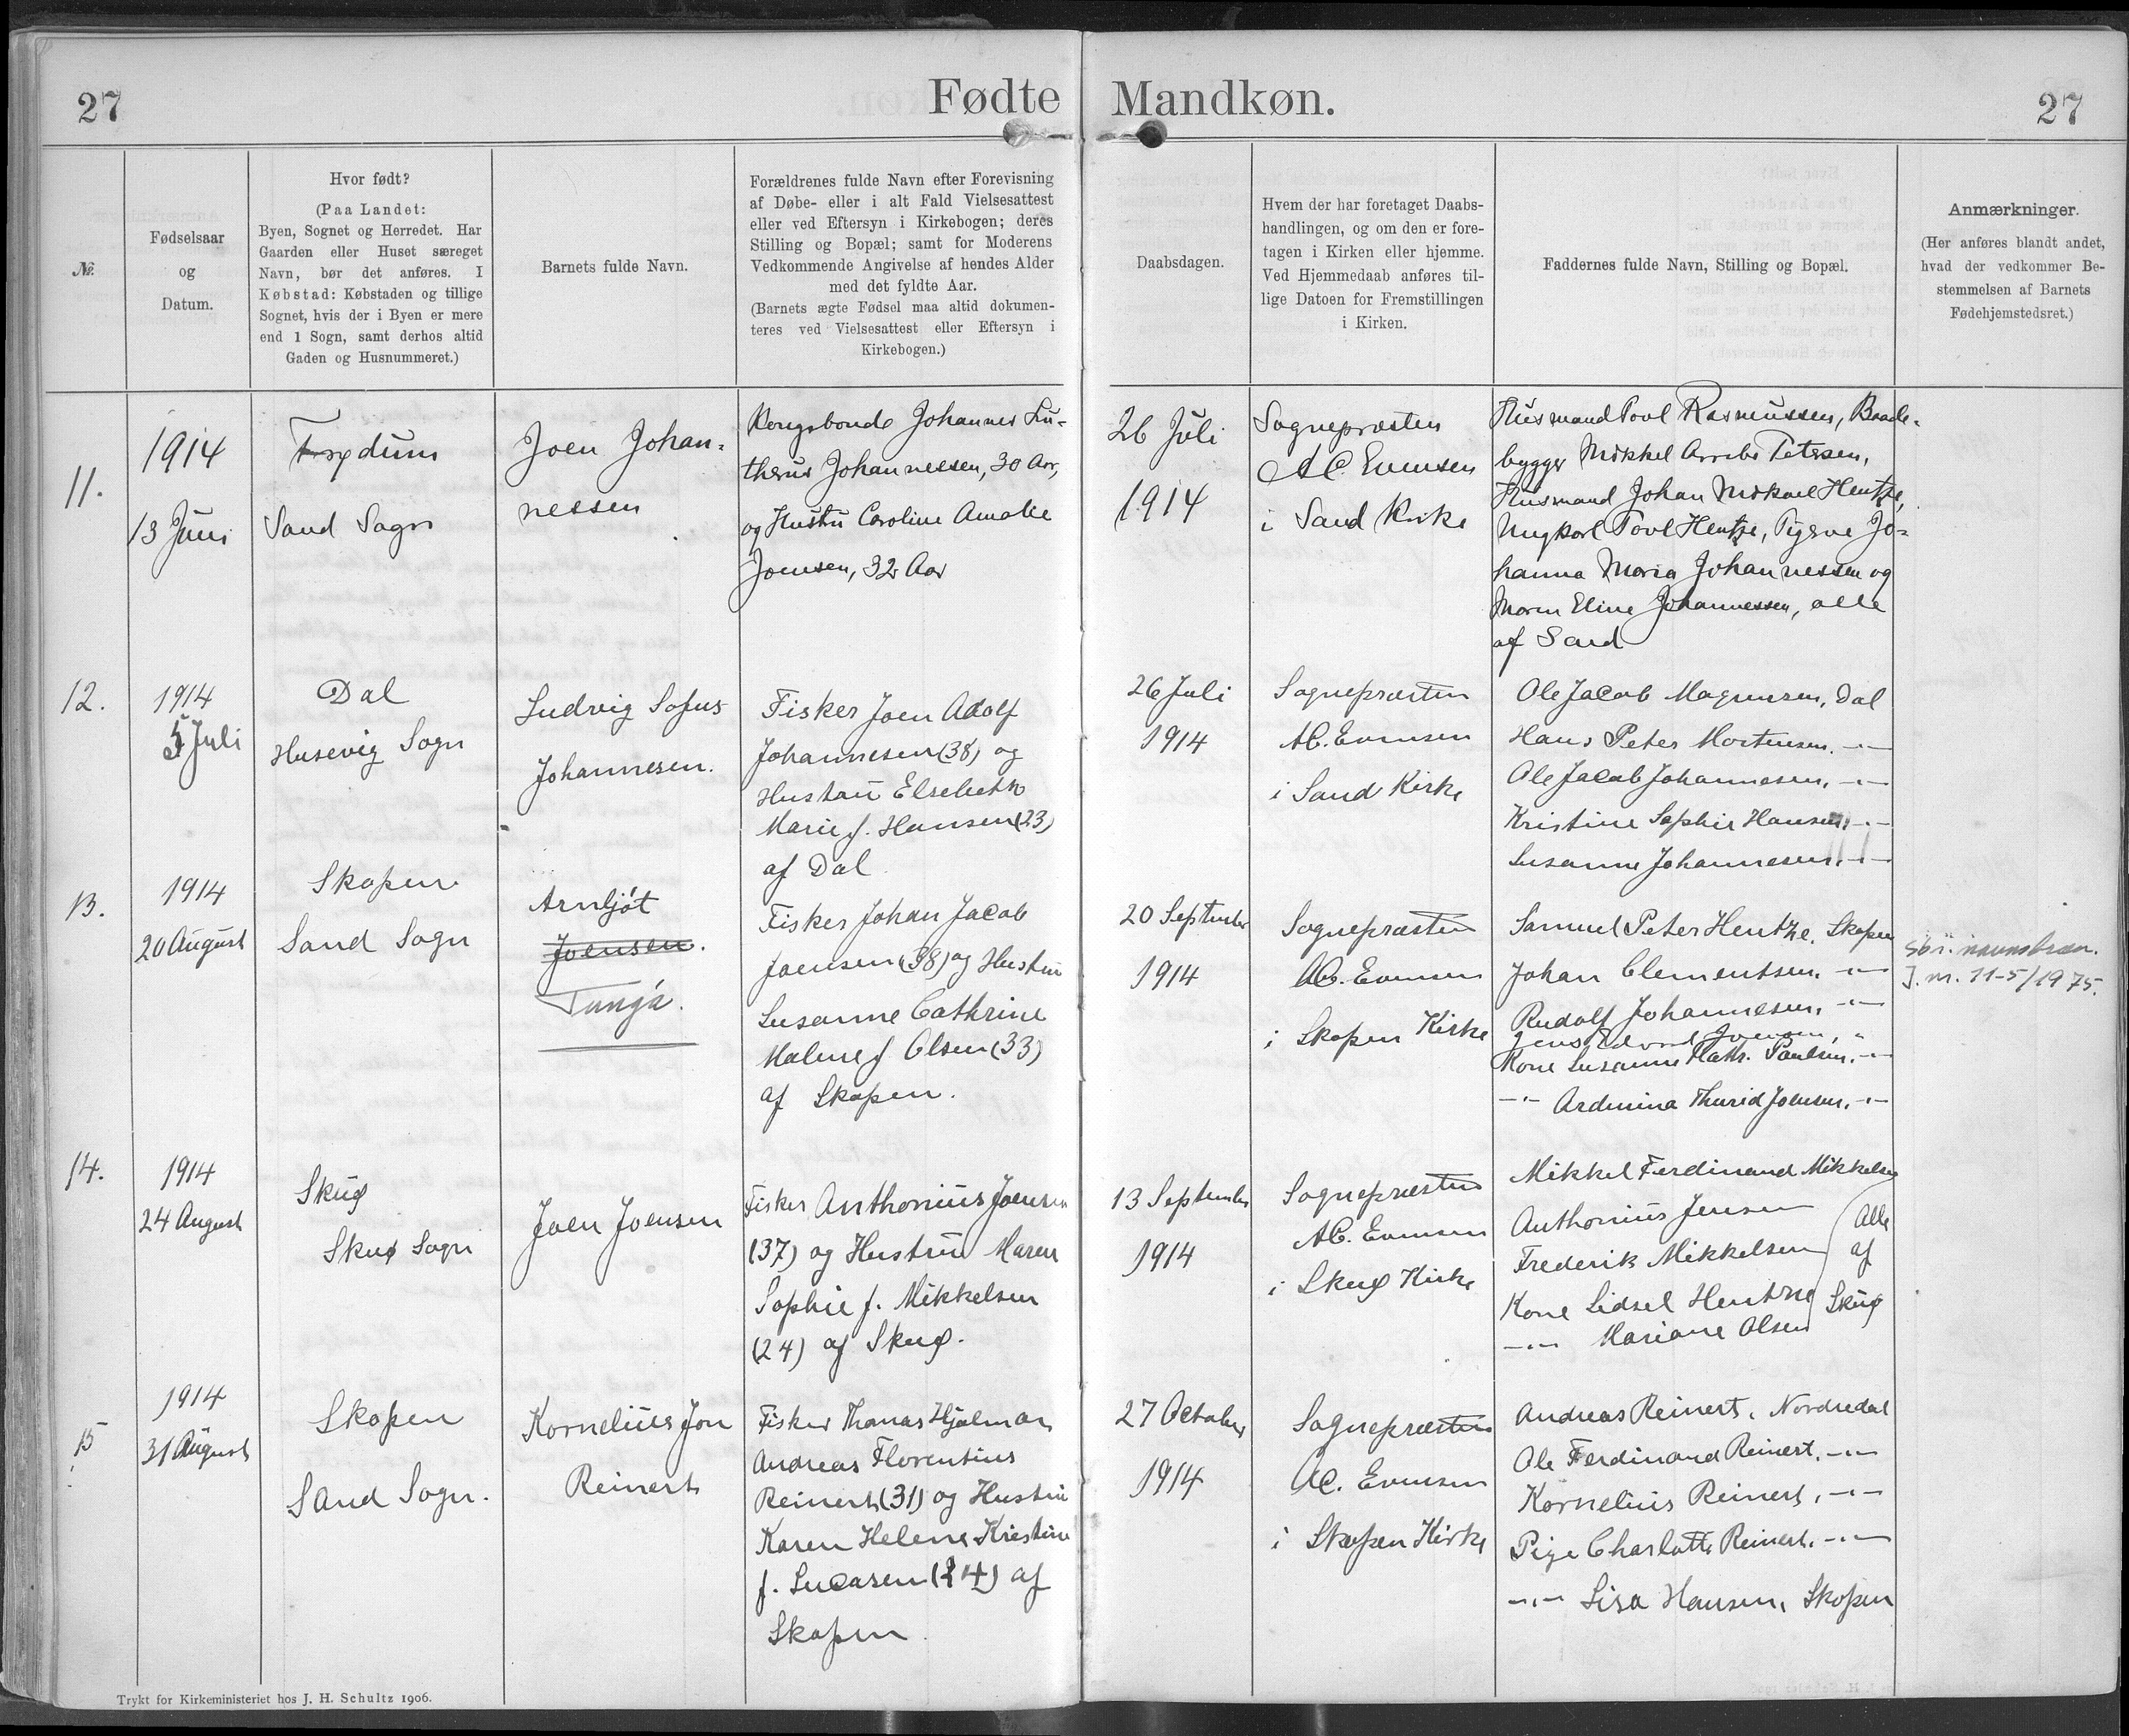 27
Fødte
Mandkøn.
27
№
Fødselsaar
og
Datum.
Hvor født?
(Paa Landet:
Byen, Sognet og Herredet. Har
Gaarden eller Huset særeget
Navn, bør det anføres. I
Købstad: Købstaden og tillige
Sognet, hvis der i Byen er mere
end 1 Sogn, samt derhos altid
Gaden og Husnummeret.)
Barnets fulde Navn.
Forældrenes fulde Navn efter Forevisning
af Døbe- eller i alt Fald Vielsesattest
eller ved Eftersyn i Kirkebogen; deres
Stilling og Bopæl; samt for Moderens
Vedkommende Angivelse af hendes Alder
med det fyldte Aar.
(Barnets ægte Fødsel maa altid dokumen-
teres ved Vielsesattest eller Eftersyn i
Kirkebogen.)
Daabsdagen.
Hvem der har foretaget Daabs-
handlingen, og om den er fore-
tagen i Kirken eller hjemme.
Ved Hjemmedaab anføres til-
lige Datoen for Fremstillingen
i Kirken.
Faddernes fulde Navn, Stilling og Bopæl.
Anmærkninger.
(Her anføres blandt andet,
hvad der vedkommer Be-
stemmelsen af Barnets
Fødehjemstedsret.)
11.
1914
13 Juni
Sand Sogn
Joen Johan-
nessen
Kongsbonde Johannes Lu-
therus Johannessen, 30 Aar,
og Hustru Caroline Amalie
Joensen, 32 Aar
26 Juli
1914
Sognepræsten
A.C. Evensen
i Sand Kirke
Husmand Poul Rasmussen, Baade-
bygger Mikkel Arrebo Petersen,
Husmand Johan Mikael Hentze,
Ungkarl Poul Hentze, Pigerne Jo-
hanna Maria Johannessen og
Maren Eline Johannessen, alle
af Sand
12.
1914
5 Juli
Dal
Husevig Sogn
Ludvig Sofus
Johannesen.
Fisker Joen Adolf
Johannesen (38) og
Hustru Elsebeth
Marie f. Hansen (23)
af Dal
26 Juli
1914
Sognepræsten
A.C. Evensen
i Sand Kirke
Ole Jacob Magnusen, Dal
Hans Peter Mortensen. -"-
Ole Jacob Johannesen, -"-
Kristine Sophie Hansen, -"-
Susanne Johannesen, -"-
13.
1914
20 August
Skopen
Sand Sogn
Arnljót
Joensen.
Tungá.
Fisker Johan Jacob
Joensen (38) og Hustru
Susanne Cathrine
Malene f. Olsen (33)
af Skopen.
20 September
1914
Sognepræsten
A.C. Evensen
i Skopen Kirke
Samuel Peter Hentze, Skopen
Johan Clementsen, -"-
Rudolf Johannesen, -"-
Jens Edvard Joensen, "
Kone Susanne Kathr. Poulsen, -"-
-"- Ardmina Thurid Joensen, -"-
J. nr. 11-5/1975.
14.
1914
24 August
Skuø
Skuø Sogn
Joen Joensen
Fisker Anthonius Joensen
(37) og Hustru Maren
Sophie f. Mikkelsen
(24) af Skuø.
13 September
1914
Sognepræsten
A.C. Evensen
i Skuø Kirke
Mikkel Ferdinand Mikkelsen
Anthonius Jensen
Frederik Mikkelsen
Kone Lidsel Hentze
-"- Mariane Olsen
Alle
af
Skuø
15
1914
31 August
Skopen
Sand Sogn.
Kornelius Jon
Reinert
Fisker Thomas Hjalmar
Andreas Florentius
Reinert (31) og Hustru
Karen Helene Kristine
f. Lucasen (24) af
Skopen.
27 October
1914
Sognepræsten
A.C. Evensen
i Skopen Kirke
Andreas Reinert, Nordredal
Ole Ferdinand Reinert, -"-
Kornelius Reinert, -"-
Pige Charlotte Reinert, -"-
-"- Lisa Hansen, Skopen
Trykt for Kirkeministeriet hos J. H. Schultz 1906.